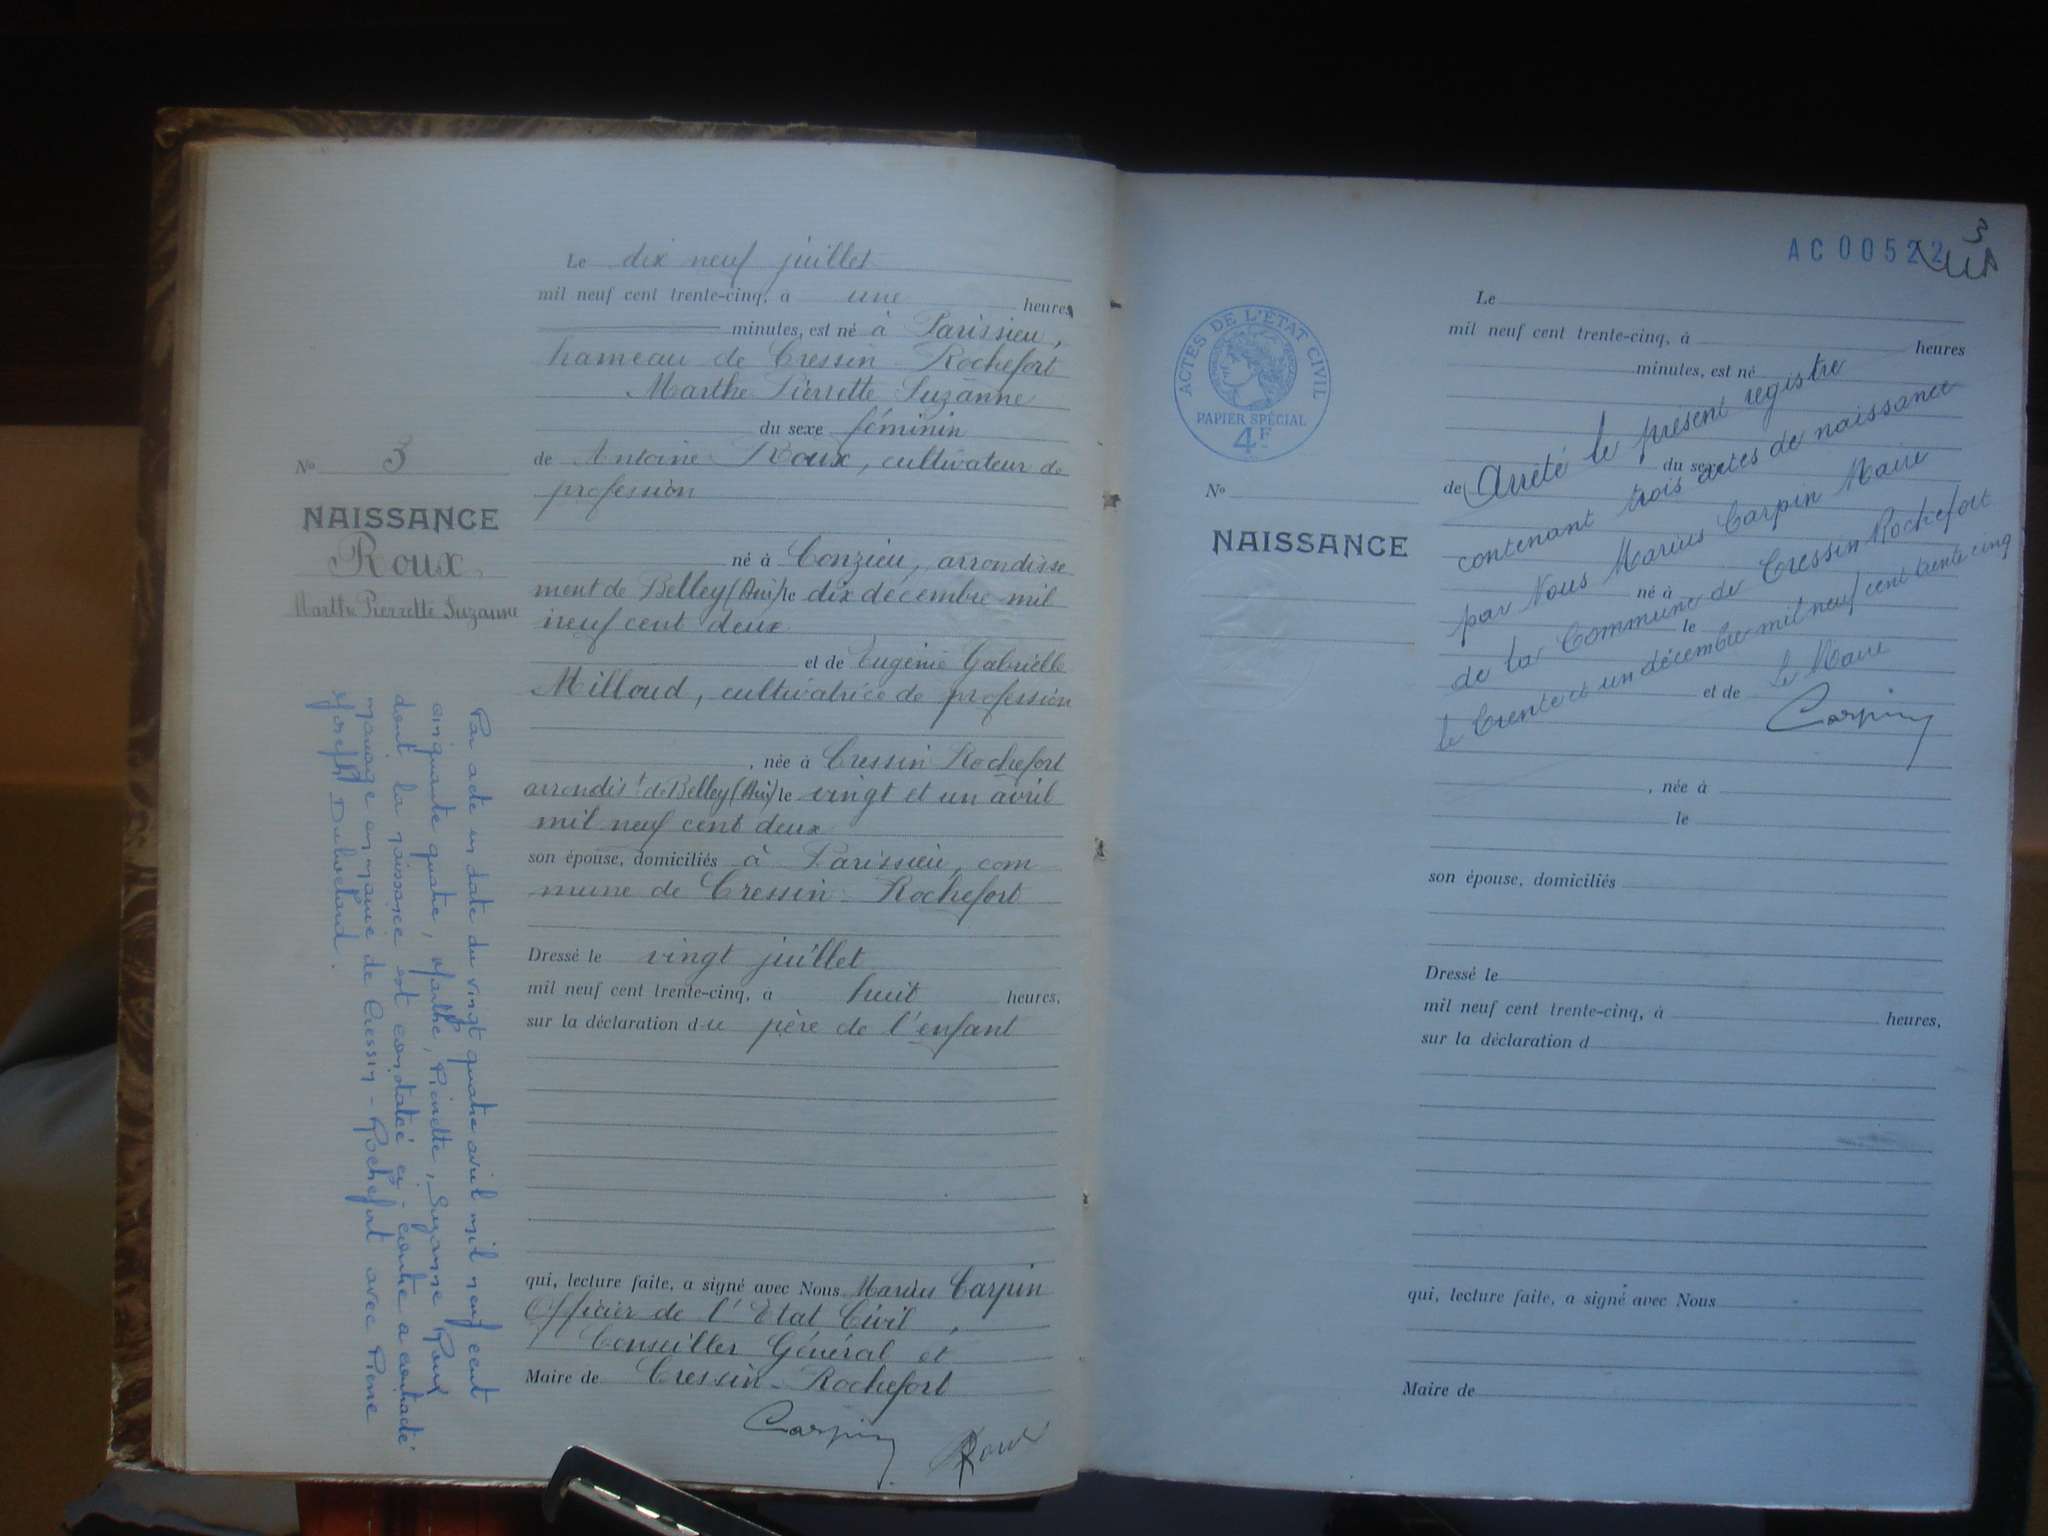 Le dix neuf juillet
mil neuf cent trente-cinq, à une heures
minutes, est né à Parissieu,
hameau de Cressin-Rochefort
Marthe Pierrette Suzanne
du sexe féminin
de Antoine Roux, cultivateur de
profession
né à Conzieu, arrondisse
ment de Belley (Ain) le dix décembre mil
neuf cent deux
et de Eugénie Gabrielle
Milloud, cultivatrice de profession
, née à Cressin Rochefort
arrondis.t de Belley (Ain) le vingt et un avril
mil neuf cent deux
son épouse, domiciliés à Parissieu, com
mune de Cressin-Rochefort
Dressé le vingt juillet
mil neuf cent trente-cinq, à huit heures,
sur la déclaration du père de l'enfant
qui, lecture faite, a signé avec Nous Marius Carpin
Officier de l'Etat Civil,
Conseiller Général et
Maire de Cressin-Rochefort
Carpin Roux
No 3
NAISSANCE
Roux
Marthe Pierrette Suzanne
Par acte en date du vingt quatre avril mil neuf cent
cinquante quatre, Marthe, Pierrette, Suzanne Roux
dont la naissance est constatée ci-contre a contracté
mariage en mairie de Cressin-Rochefort avec Pierre
Joseph
3
AC 00522
ACTES DE L'ETAT CIVIL
PAPIER SPÉCIAL
4F
No
NAISSANCE
Le
mil neuf cent trente-cinq, à heures
minutes, est né
du sexe
de
né à
le
et de
, née à
le
son épouse, domiciliés
Dressé le
mil neuf cent trente-cinq, à heures,
sur la déclaration d
qui, lecture faite, a signé avec Nous
Maire de
Arrêté le présent registre
contenant trois actes de naissance
par Nous Marius Carpin Maire
de la Commune de Cressin Rochefort
le trente et un décembre mil neuf cent trente cinq
le Maire
Carpin